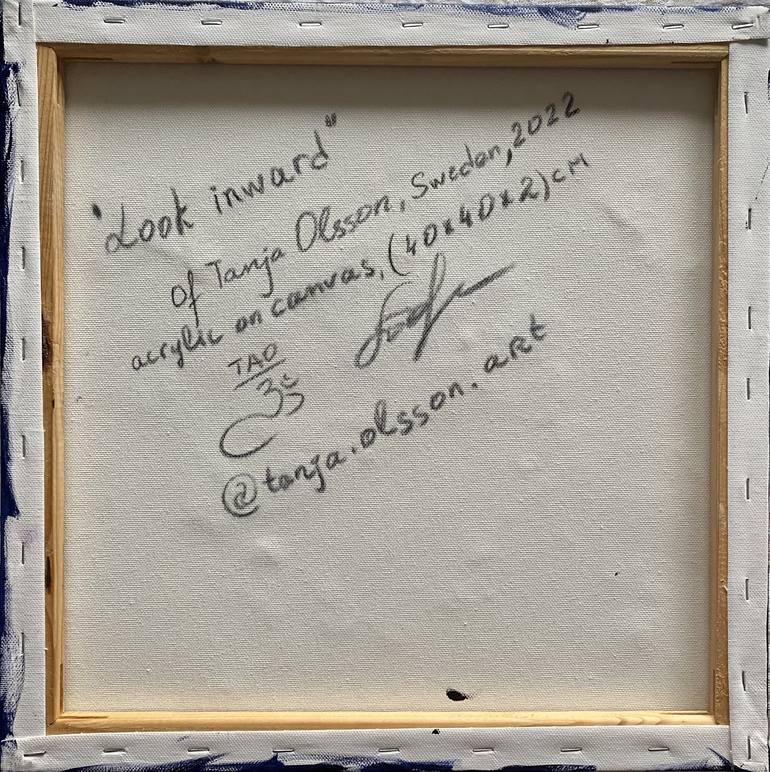 "Look inward"
of Tanja Olsson, Sweden, 2022
acrylic on canvas, (40x40x2) cm
TAO
@tanja.olsson.art